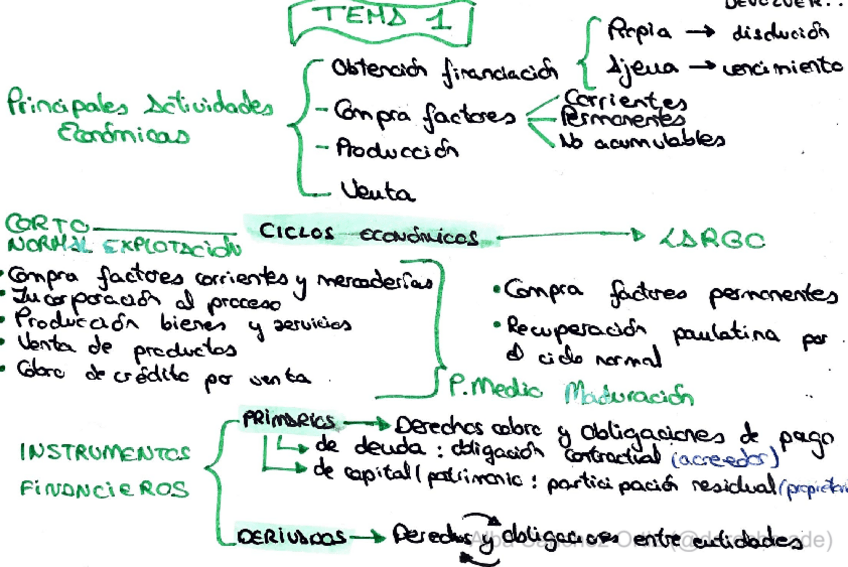 DEVOLVER..
TEMA 1
Propia → disolución
Obtención financiación
Ajena → vencimiento
Principales Actividades
Económicas
- Compra factores
Corrientes
Permanentes
No acumulables
- Producción
- Venta
CORTO
NORMAL EXPLOTACIÓN
CICLOS ECONÓMICOS
LARGO
• Compra factores corrientes y mercaderías
• Incorporación al proceso
• Producción bienes y servicios
• Venta de productos
• Cobro de crédito por venta
• Compra factores permanentes
• Recuperación paulatina por
el ciclo normal
P. Medio Maduración
INSTRUMENTOS
FINANCIEROS
PRIMARIOS → Derechos cobro y obligaciones de pago
→ de deuda : obligación contractual (acreedor)
→ de capital / patrimonio : participación residual (propietario
DERIVADOS → Derechos y obligaciones entre entidades